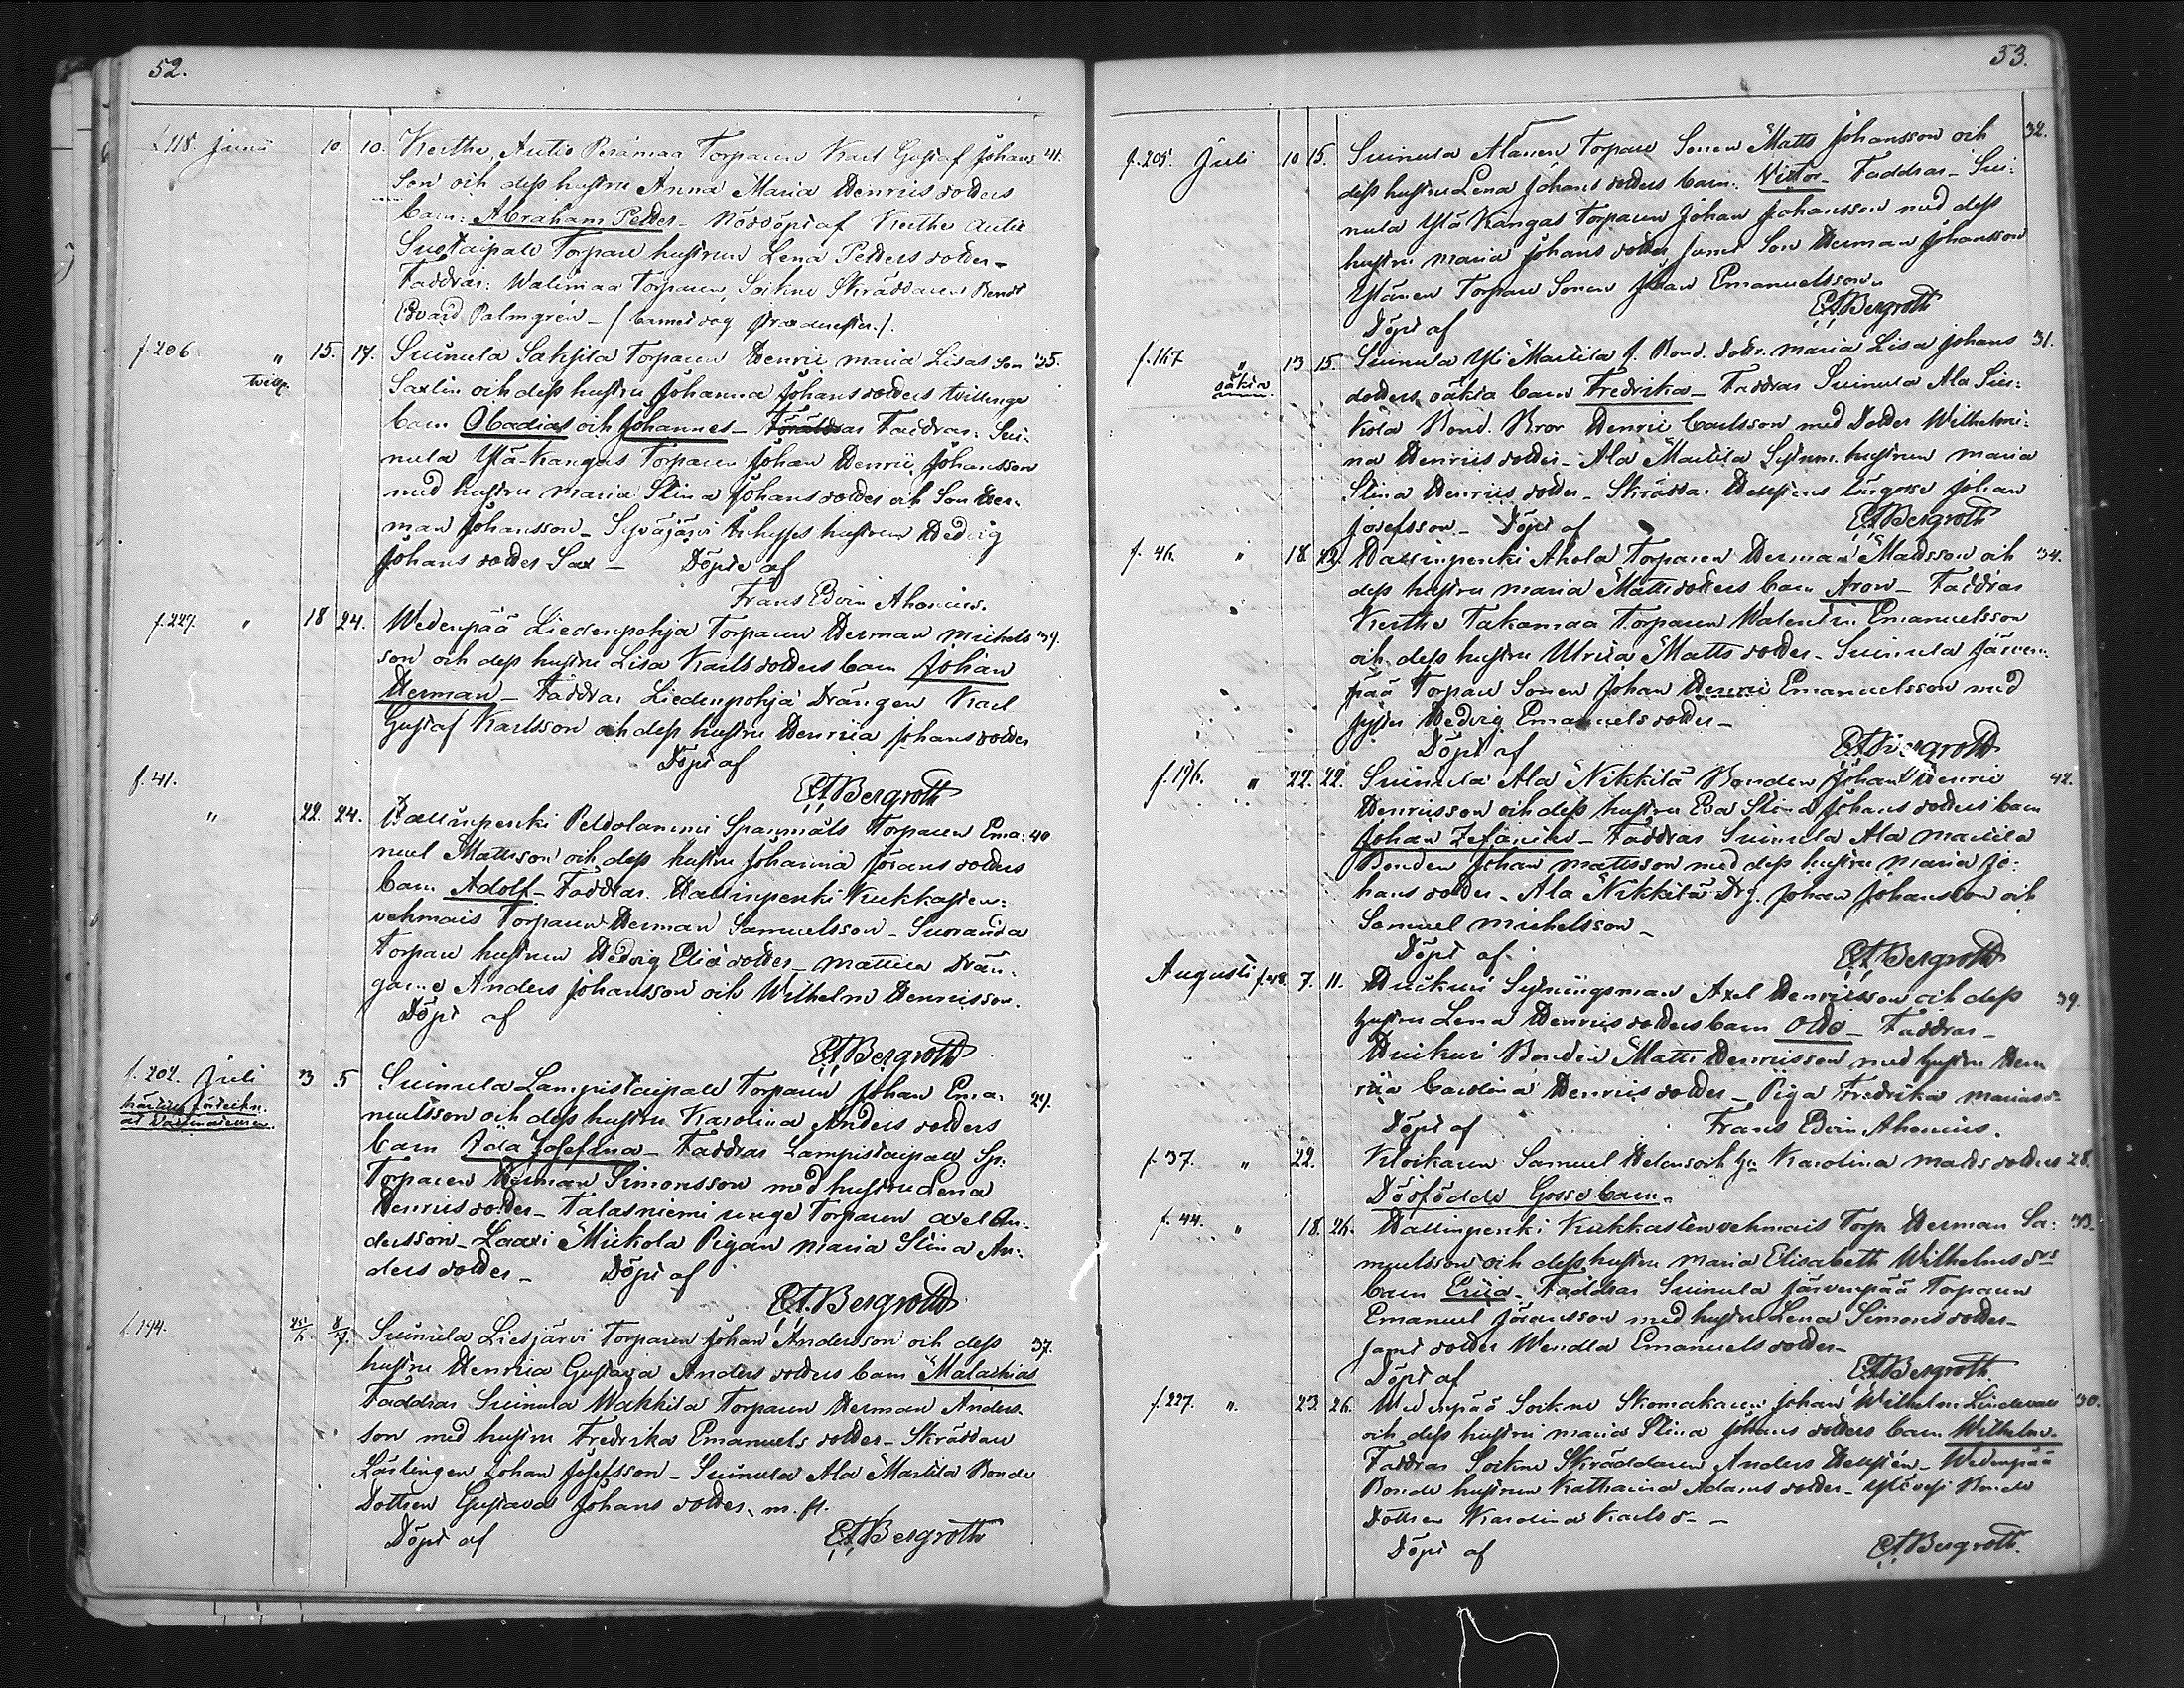 52.
f. 118. Junii 10. 10. Kerttu, Autio Perämaa Torparen Karl Gustaf Johans 41.
son och dess hustru Anna Maria Henriksdotters
barn: Abraham Petter - Nöddöpt af Kerttu Autio
Suotaipale Torpare hustrun Lena Petters dotter -
Faddrar: Walimaa Torparen, Sockne Skräddaren Bendt
Edvard Palmgrén - (barnet dog strax derefter.).
f. 206 " 15. 17. Suinula Sakjita Torparen Henric Maria Lisas son 35.
tvill.
Saxlin och dess hustru Johanna Johans dotters tvillinge
barn Obadias och Johannes - Föräldrar Faddrar: Sui-
nula Ylä-Kangas Torparen Johan Henric Johansson
med hustru Maria Stina Johans dotter och Son Her-
man Johansson - Syväjärvi Inhyses hustrun Hedvig
Johans dotter Sax - Döpte af
Frans Edvin Ahonius.
f. 227. " 18 24. Wedenpää Liedenpohja Torparen Herman Michels 34.
son och dess hustru Lisa Karls dotters barn Johan
Herman - Faddrar Liedenpohja Drängen Karl
Gustaf Karlsson och dess hustru Henrica Johans dotter
Döpt af
EABergroth
f. 41.
" 22. 24. Hallinpenki Peldolammi Spanmåls Torparen Ema: 40
nuel Mattsson och dess hustru Johanna Görans dotters
barn Adolf - Faddrar. Hallinpenki Kukkasten-
vehmais Torparen Herman Samuelsson - Suoranda
Torpare hustrun Hedvig Eliæ dotter - Mattila Drän-
garne Anders Johansson och Wilhelm Henricsson.
Döpt af
EABergroth
f. 202. Juli 3 5 Suinula Lampistaipale Torparen Johan Ema- 29.
nuelsson och dess hustru Karolina Anders dotters
barn Ida Josefina - Faddrar Lampistaipale Sp:
Torparen Herman Simonsson med hustru Lena
Henrics dotter - Talasniemi unge Torparen Axel An-
dersson - Laaxi Mickola Pigan Maria Stina An-
ders dotter - Döpt af
EA.Bergroth
f. 194. 8/7. Suinula Liesjärvi Torparen Johan Andersson och dess 37.
hustru Henrica Gustava Anders dotters barn Malachias
Faddrar Suinula Wakkila Torparen Herman Anders-
son med hustru Fredrika Emanuels dotter - Skräddare
Lärlingen Johan Josefsson - Suinula Ala Marttila Bonde
Dottren Gustava Johans dotter, m. fl.
Döpt af EABergroth
53.
f. 205. Juli 10 15. Suinula Alanen Torpare Sonen Matts Johansson och 32.
dess hustru Lena Johans dotters barn. Victor - Faddrar - Sui-
nula Ylä Kangas Torparen Johan Johansson med dess
hustru Maria Johans dotter samt Son Herman Johansson
Ylänen Torpare Sonen Johan Emanuelsson.
Döpt af EABergroth
f. 167 " 13 15. Suinula Yli Marttila f. Bond. Dottr. Maria Lisa Johans 31.
oäkta
dotters oäkta barn Fredrika - Faddrar Suinula Ala Sur-
kola Bond. Bror Henric Carlsson med Dotter Wilhelmi-
na Henrics dotter - Ala Marttila Sytnm. hustrun Maria
Stina Henrics dotter - Skräddar Hellsténs lärgosse Johan
Josefsson. - Döpt af EABergroth
f. 46. " 18 22. Hallinpenki Ahola Torparen Herman Mattsson och 34.
dess hustru Maria Matts dotters barn Aron - Faddrar
Kerttu Takamaa Torparen Walentin Emanuelsson
och dess hustru Ulrica Matts dotter - Suinula Järven-
pää Torpare Sonen Johan Henric Emanuelsson med
syster Hedvig Emanuels dotter -
Döpt af EABergroth
f. 176. " 22. 22. Suinula Ala Nikkilä Bonden Johan Henric 42.
Henricsson och dess hustru Eva Stina Johans dotters barn
Johan Zefanias - Faddrar Suinula Ala Marttila
Bonden Johan Mattsson med dess hustru Maria Jo-
hans dotter - Ala Nikkilä Drg. Johan Johansson och
Samuel Michelsson -
Döpt af EABergroth
Augusti f. 48. 7. 11. Huikuri Sytningsman Axel Henricsson och dess 39.
hustru Lena Henrics dotters barn Otto - Faddrar -
Huikuri Bonden Matts Henricsson med hustru Hen
rica Carolina Henrics dotter - Piga Fredrika Marias dr
Döpt af Frans Edvin Ahonius.
f. 37. " 22. Klockaren Samuel Helen och h:u Karolina Matts dotters 28.
Dödfödde Gossebarn.
f. 44. " 18. 26. Hallinpenki Kukkastenvehmais Torp. Herman Sa- 33.
muelsson och dess hustru Maria Elisabeth Wilhelms drs
barn Erica - Faddrar Suinula Järvenpää Torparen
Emanuel Göransson med hustru Lena Simons dotter -
samt dotter Wendla Emanuels dotter -
Döpt af EABergroth
f. 227. " 23. 26. Wedenpää Sockne Skomakaren Johan Wilhelm Lindevall 30.
och dess hustru Maria Stina Johans dotters barn Wilhelm -
Faddrar Sockne Skräddaren Anders Hellstén - Wedenpää
Bonde hustrun Katharina Adams dotter - Ylövesi Bonde
Dottren Karolina Karls d. -
Döpt af EABergroth.